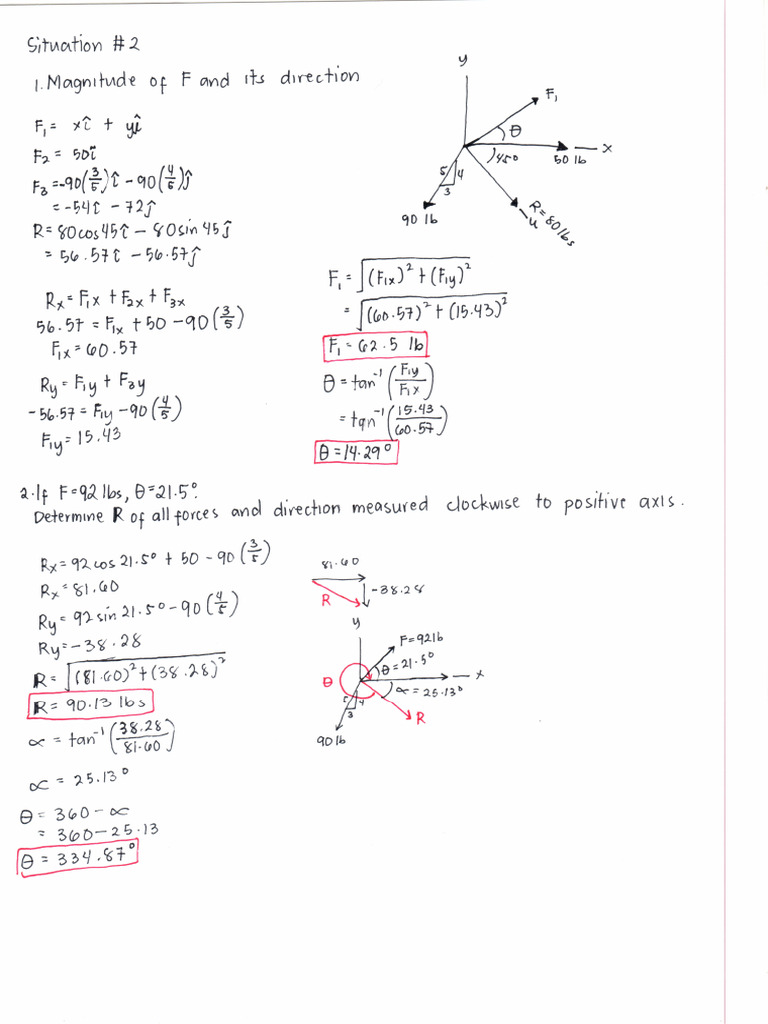 Situation #2
1. Magnitude of F and its direction
F₁ = xî + yĵ
F₂ = 50î
F₃ = -90(3/5)î - 90(4/5)ĵ
= -54î - 72ĵ
R = 80cos45î - 80sin45ĵ
= 56.57î - 56.57ĵ
Rx = F₁x + F₂x + F₃x
56.57 = F₁x + 50 - 90(3/5)
F₁x = 60.57
Ry = F₁y + F₃y
-56.57 = F₁y - 90(4/5)
F₁y = 15.43
y
F₁
θ
x
45°
50 lb
5
4
3
90 lb
R = 80 lbs
-u
F₁ = √(F₁x)² + (F₁y)²
= √(60.57)² + (15.43)²
F₁ = 62.5 lb
θ = tan⁻¹(F₁y/F₁x)
= tan⁻¹(15.43/60.57)
θ = 14.29°
2. If F = 92 lbs, θ = 21.5°.
Determine R of all forces and direction measured clockwise to positive axis.
Rx = 92 cos 21.5° + 50 - 90(3/5)
Rx = 81.60
Ry = 92 sin 21.5° - 90(4/5)
Ry = -38.28
R = √(81.60)² + (38.28)²
R = 90.13 lbs
α = tan⁻¹(38.28/81.60)
α = 25.13°
θ = 360 - α
= 360 - 25.13
θ = 334.87°
81.60
-38.28
R
y
F = 92 lb
θ = 21.5°
x
θ
α = 25.13°
5
4
3
R
90 lb